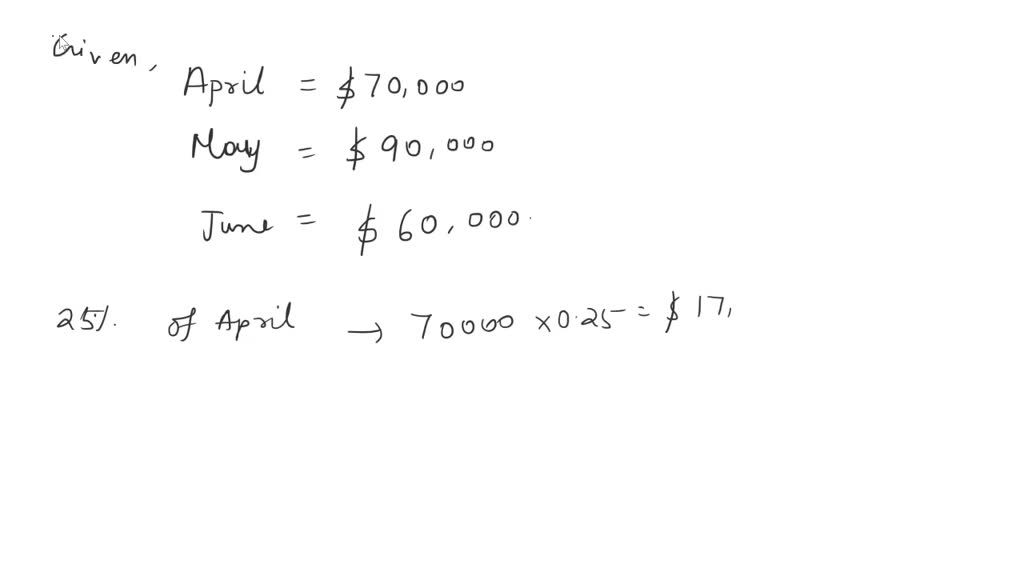 Given,
April = $70,000
May = $ 90,000
June = $ 60,000.
25%. of April → 70000 x0.25 = $ 17,